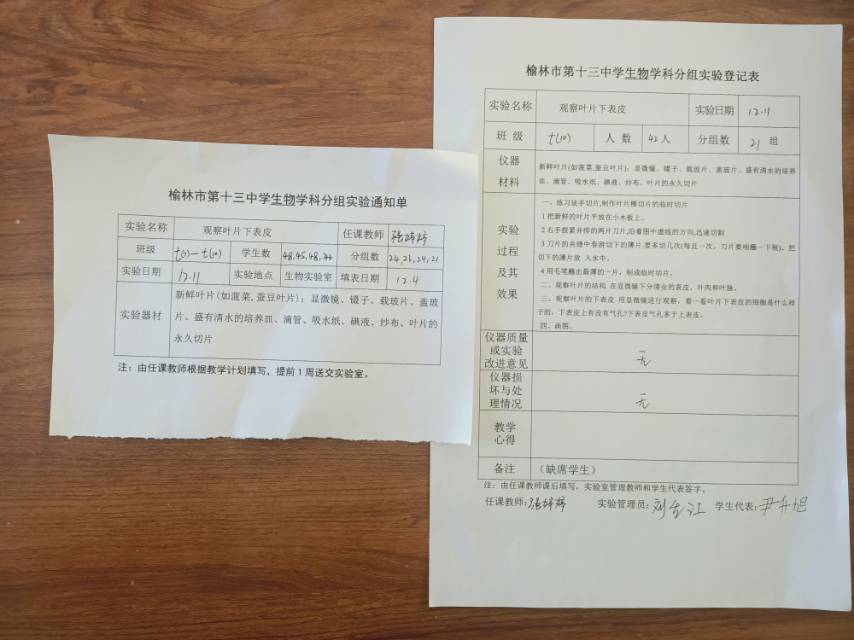 榆林市第十三中学生物学科分组实验通知单
实验名称 观察叶片下表皮 任课教师
班级 学生数 48,45,48, 分组数 24,23,24,21
实验日期 12.11 实验地点 生物实验室 填表日期 12.4
实验器材
新鲜叶片(如菠菜,蚕豆叶片)；显微镜、镊子、载玻片、盖玻
片、盛有清水的培养皿、滴管、吸水纸、碘液、纱布、叶片的
永久切片
注：由任课教师根据教学计划填写，提前1周送交实验室。
榆林市第十三中学生物学科分组实验登记表
实验名称 观察叶片下表皮 实验日期 12.11
班 级 人 数 42人 分组数 21 组
仪器
材料
新鲜叶片(如菠菜,蚕豆叶片)；显微镜、镊子、载玻片、盖玻片、盛有清水的培养
皿、滴管、吸水纸、碘液、纱布、叶片的永久切片
实验
过程
及其
效果
一、练习徒手切片,制作叶片横切片的临时切片
1把新鲜的叶片平放在小木板上。
2右手捏紧并排的两片刀片,沿着图中虚线的方向,迅速切割
3刀片的夹缝中存游切下的薄片,要多切几次(每且一次，刀片要咱醮一下板)。把
切下的薄片放 入水中。
4用毛笔蘸出最薄的一片，制成临时切片。
二、观察叶片的结构 在显微镜下分清业的表皮、叶肉和叶脉。
三、观察叶片的下表皮 用显微镜进行观察，看一看叶片下表皮的细胞是什么样
子的，下表皮上有没有气孔?下表皮气孔多于上表皮。
四、画图。
仪器质量
或实验
改进意见
无
仪器损
坏与处
理情况
无
教学
心得
备注 (缺席学生)
注：由任课教师课后填写，实验室管理教师和学生代表签字。
任课教师: 实验管理员: 学生代表: